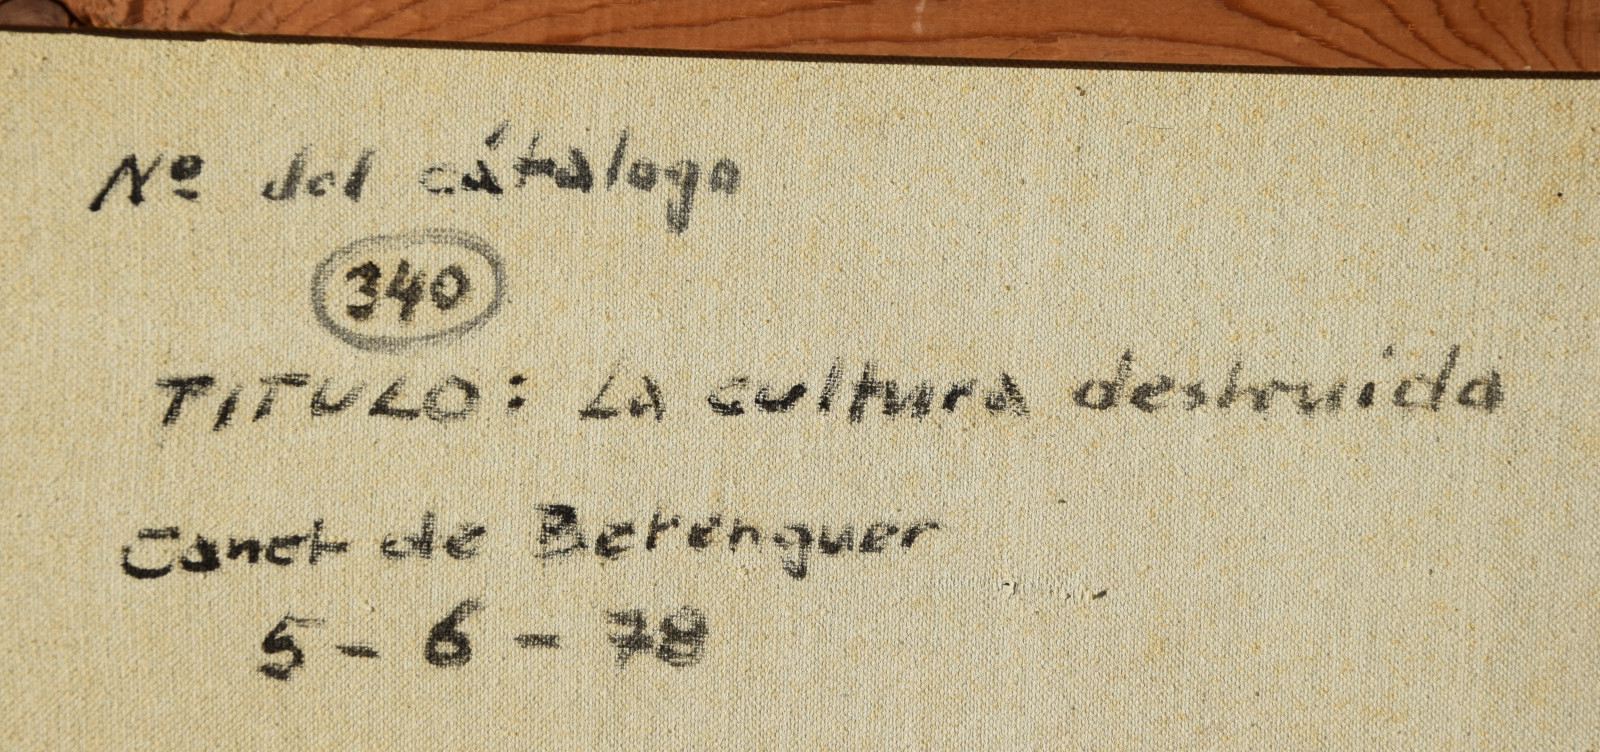 Nº del cátalogo
340
TITULO: La cultura destruida
Canet de Berenguer
5-6-78